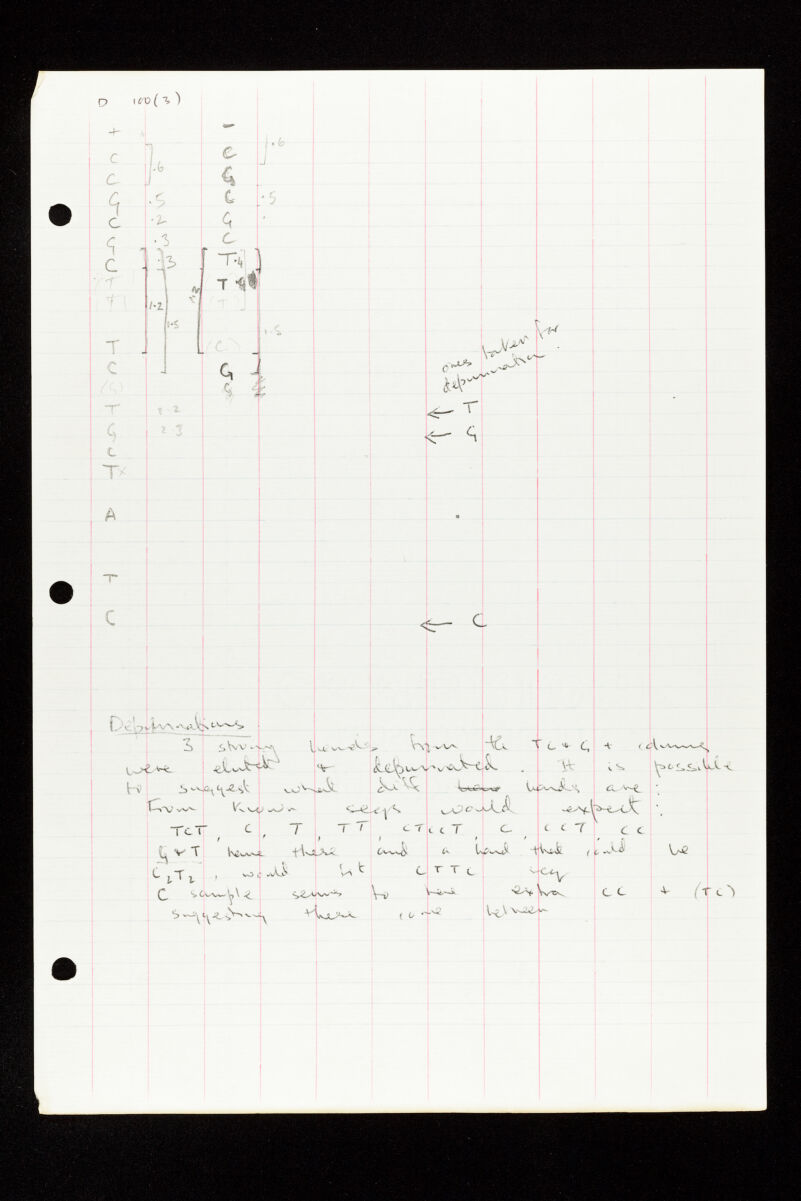 D 100(3)
+ -
C C ·6
C ·6 G
G ·5 C ·5
C ·2 G
G ·3 C
C ·3 T·4
(T) T
(T) 1·2 (T)
1·5
T (C) 1·5
C G
(G) G
ones taken for
depurination.
T 2·2 ← T
G 2·3 ← G
C
T×
A
T
C ← C
Depurinations
3 strong bands from the T C & G + columns
were eluted & depurinated. It is possible
to suggest what diff bands are:
From known seqs would expect:
TCT, C, T, TT, CTCCT, C, CCT, CC
G & T have these and a band that could be
C2T2, would fit CTTC seq
C sample seems to have extra CC + (TC)
suggesting these come between